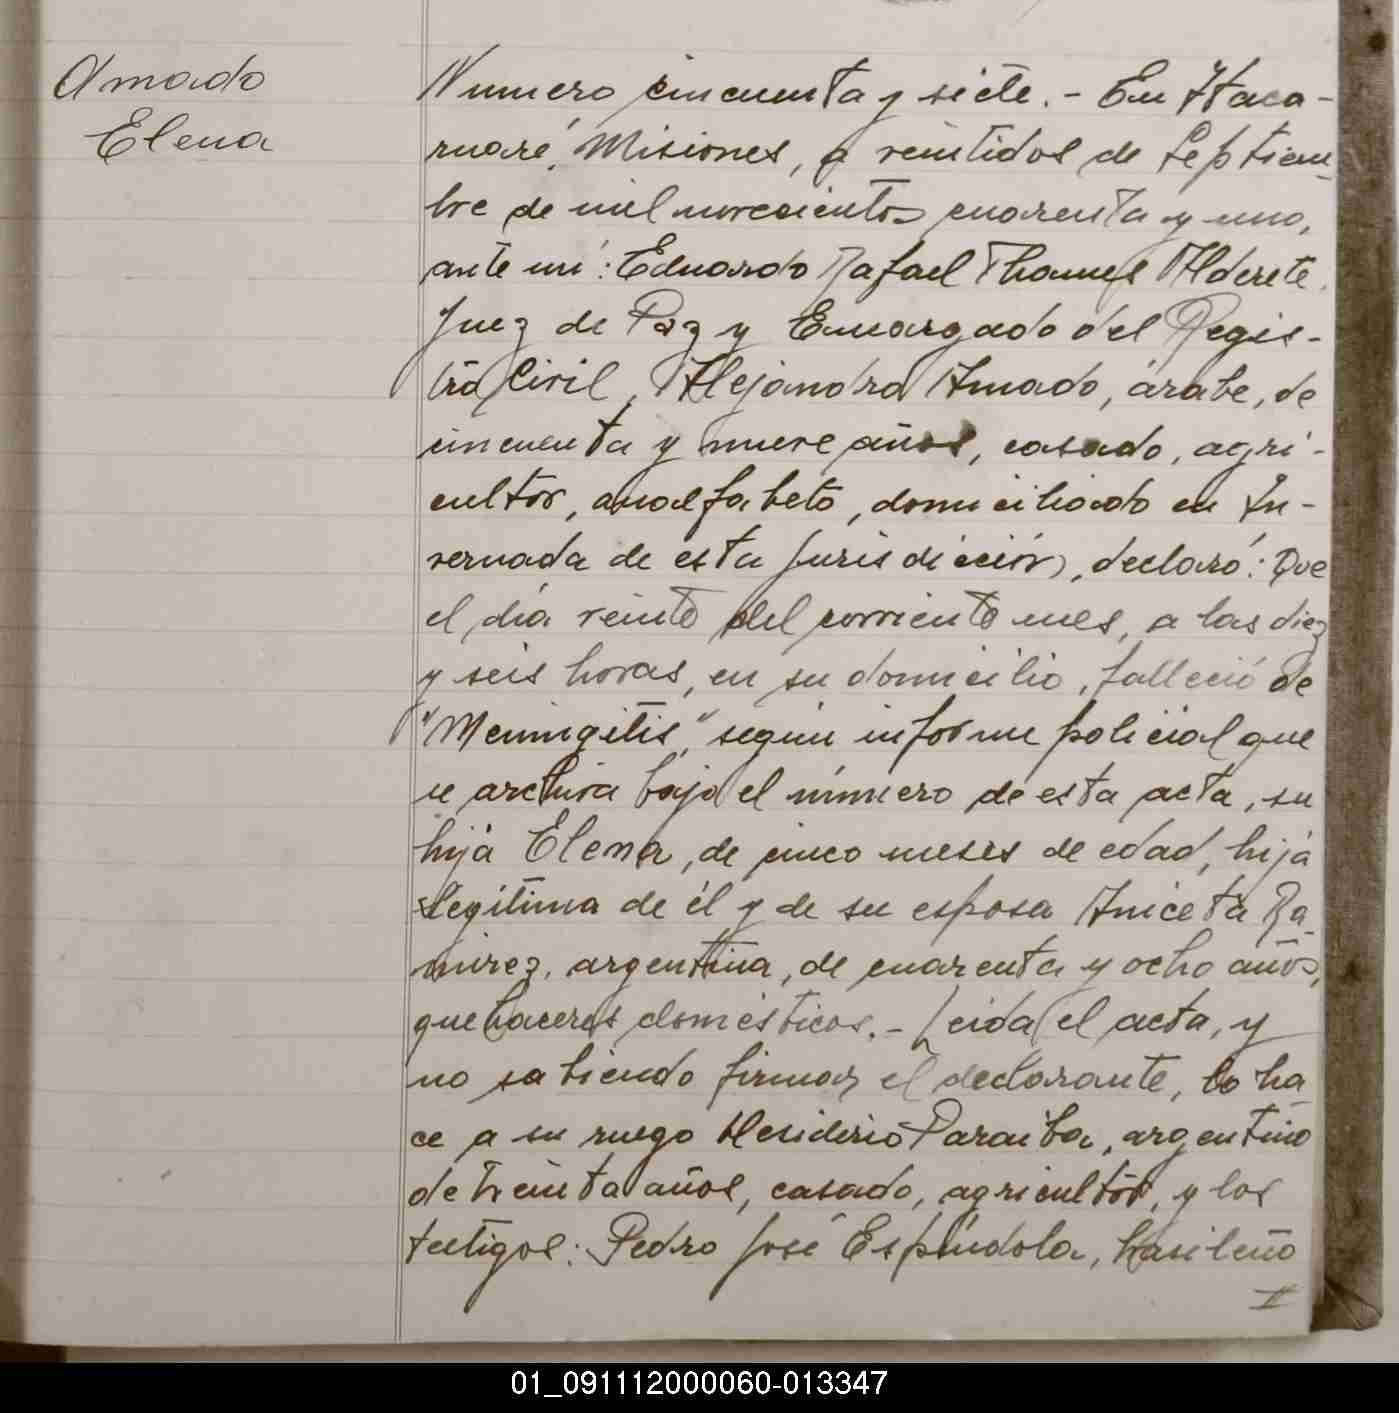 Amado
Elena
Numero cincuenta y siete.- En Itaca-
ruaré, Misiones, a veintidos de Septiem-
bre de mil novecientos cuarenta y uno,
ante mi: Eduardo Rafael Thames Alderete,
Juez de Paz y Encargado del Regis-
tro Civil, Alejandro Amado, árabe, de
cincuenta y nueve años, casado, agri-
cultor, analfabeto, domiciliado en In-
vernada de esta Jurisdicción, declaró: Que
el día veinte del corriente mes, a las diez
y seis horas, en su domicilio, falleció de
"Meningitis", según informe policial que
se archiva bajo el número de esta acta, su
hija Elena, de cinco meses de edad, hija
legítima de él y de su esposa Aniceta Ra-
mirez, argentina, de cuarenta y ocho años,
quehaceres domésticos.- Leida el acta, y
no sabiendo firmar el declarante, lo ha-
ce a su ruego Desiderio Paraiba, argentino
de treinta años, casado, agricultor, y los
testigos: Pedro José Espíndola, brasileño
II
01_091112000060-013347